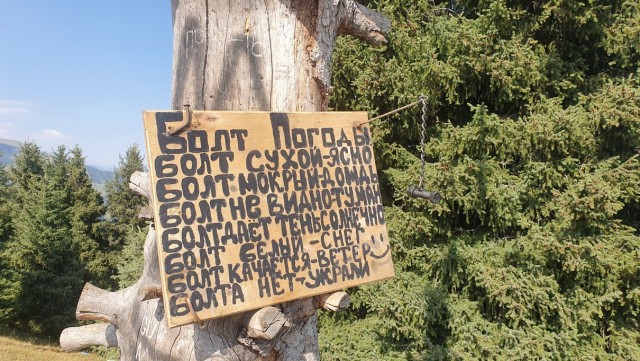 Болт Погоды
БОЛТ СУХОЙ-ЯСНО
БОЛТ МОКРЫЙ-ДОЖДЬ
БОЛТ НЕ ВИДНО ТУМАН
БОЛТ ДАЁТ ТЕНЬ СОЛНЕЧНО
БОЛТ БЕЛЫЙ-СНЕГ
БОЛТ КАЧАЕТСЯ-ВЕТЕР
БОЛТА НЕТ-УКРАЛИ